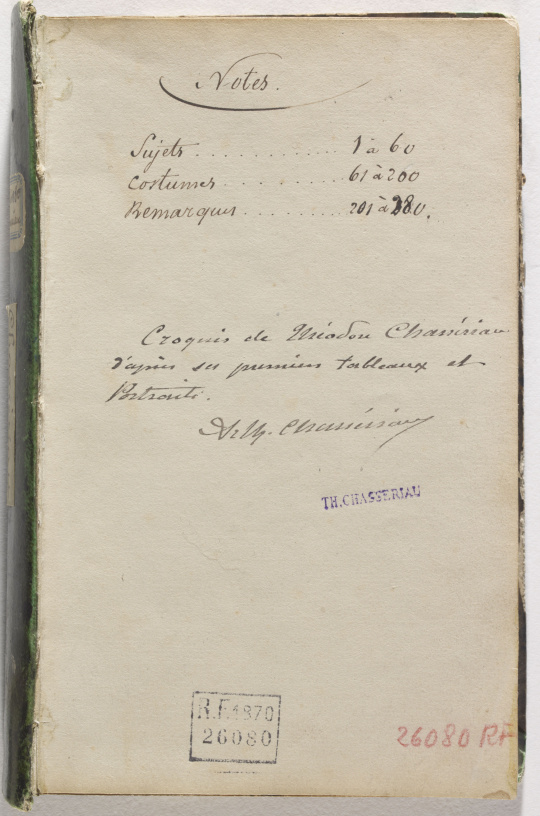 Notes.
Sujets . . . . . . . . . . . . 1 à 60
Costumes . . . . . . . . . . 61 à 200
Remarques . . . . . . . . . 201 à 280.
Croquis de Théodore Chassériau
d'après ses premiers tableaux et
Portraits.
Arth. Chassériau
TH. CHASSERIAU
R.F. 1870
26080
26080 RF